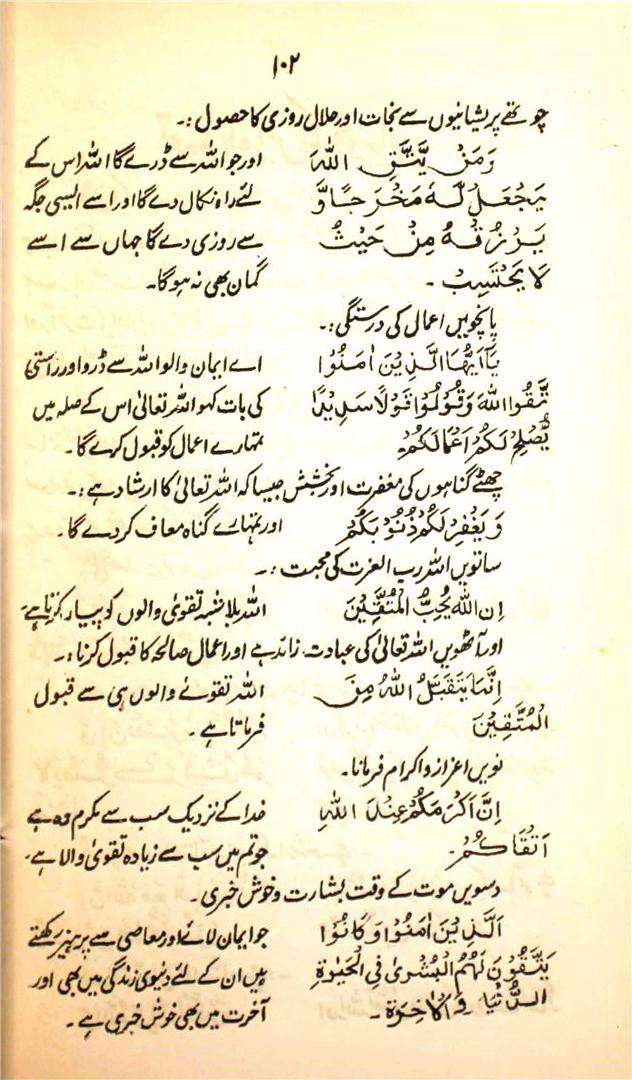 ۱۰۲
چوتھے پریشانیوں سے نجات اور حلال روزی کا حصول :۔
وَمَنْ يَّتَّقِ اللّٰهَ اور جو اللہ سے ڈرے گا اللہ اس کے
يَجْعَلْ لَّهٗ مَخْرَجًا وَّ لئے راہ نکال دے گا اور اسے ایسی جگہ
يَرْزُقْهُ مِنْ حَيْثُ سے روزی دے گا جہاں سے اسے
لَا يَحْتَسِبْ ۔ گمان بھی نہ ہوگا۔
پانچویں اعمال کی درستگی :۔
يٰٓاَيُّهَا الَّذِيْنَ اٰمَنُوْا اے ایمان والو اللہ سے ڈرو اور راستی
تَّقُوا اللّٰهَ وَقُوْلُوْا قَوْلًا سَدِيْدًا کی بات کہو اللہ تعالیٰ اس کے صلہ میں
يُّصْلِحْ لَكُمْ اَعْمَالَكُمْ۔ تمہارے اعمال کو قبول کرے گا۔
چھٹے گناہوں کی مغفرت اور بخشش جیسا کہ اللہ تعالیٰ کا ارشاد ہے :۔
وَيَغْفِرْ لَكُمْ ذُنُوْبَكُمْ اور تمہارے گناہ معاف کر دے گا۔
ساتویں اللہ رب العزت کی محبت :۔
اِنَّ اللّٰهَ يُحِبُّ الْمُتَّقِيْنَ اللہ بلا شبہ تقویٰ والوں کو پیار کرتا ہے۔
اور آٹھویں اللہ تعالیٰ کی عبادت زائد ہے اور اعمال صالحہ کا قبول کرنا :۔
اِنَّمَا يَتَقَبَّلُ اللّٰهُ مِنَ اللہ تقوےٰ والوں ہی سے قبول
الْمُتَّقِيْنَ فرماتا ہے۔
نویں اعزاز و اکرام فرمانا۔
اِنَّ اَكْرَمَكُمْ عِنْدَ اللّٰهِ خدا کے نزدیک سب سے مکرم وہ ہے
اَتْقَاكُمْ۔ جو تم میں سب سے زیادہ تقویٰ والا ہے۔
دسویں موت کے وقت بشارت و خوش خبری۔
اَلَّذِيْنَ اٰمَنُوْا وَكَانُوْا جو ایمان لائے اور معاصی سے پرہیز رکھتے
يَتَّقُوْنَ لَهُمُ الْبُشْرٰى فِى الْحَيٰوةِ ہیں ان کے لئے دنیوی زندگی میں بھی اور
الدُّنْيَا وَالْاٰخِرَةِ ۔ آخرت میں بھی خوش خبری ہے۔